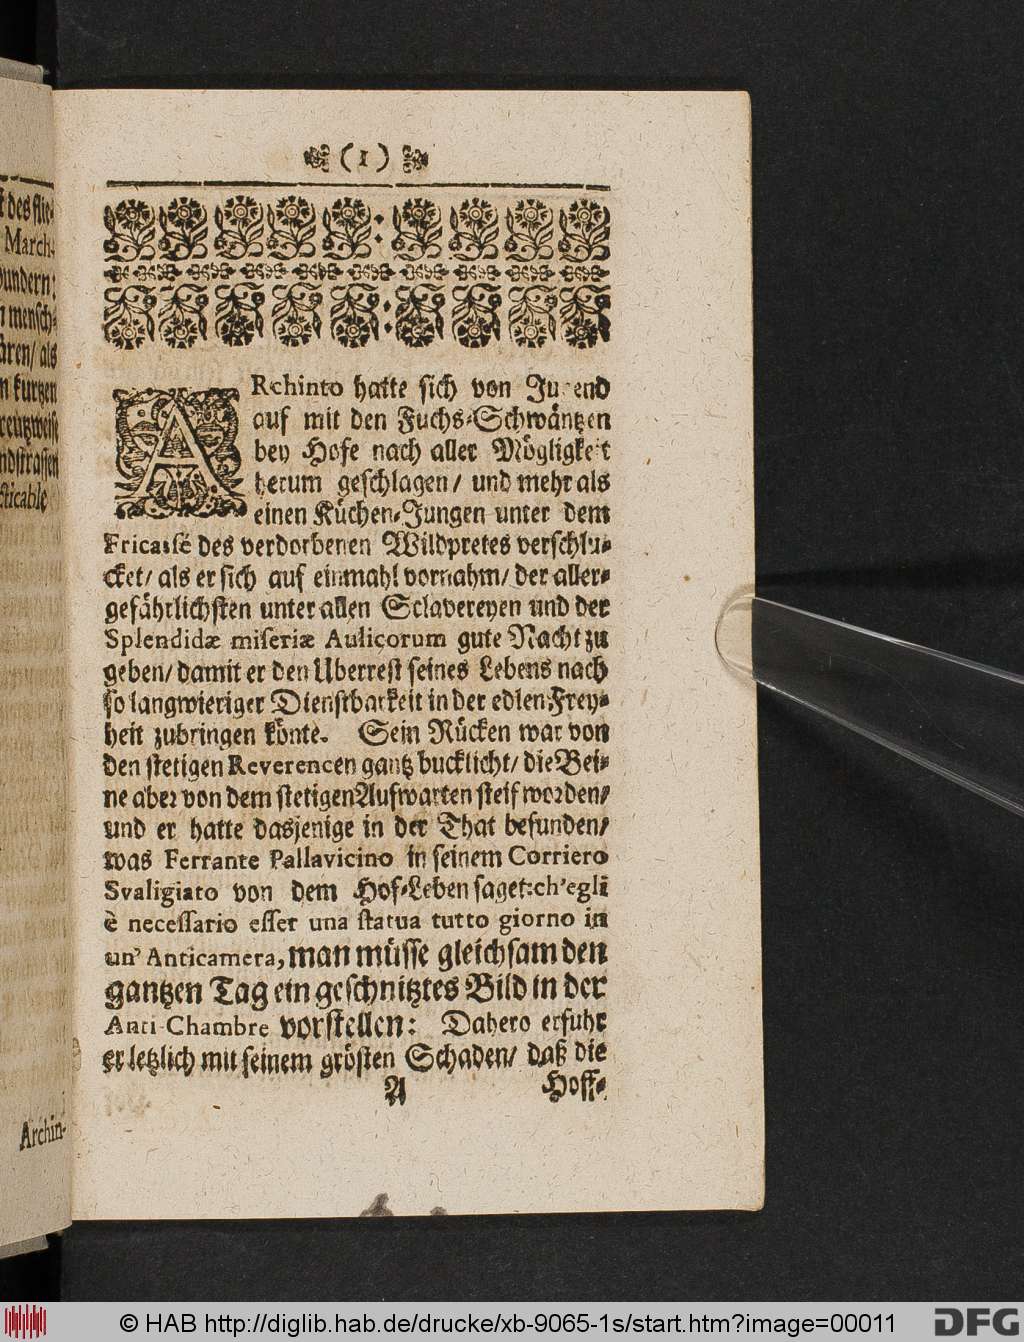 t des flie-
March-
wundern:
n mensch-
ären/ als
n kurtzen
reutzweise
ndstrassen
cticable
Archin-
( 1 )
ARchinto hatte sich von Jugend
auf mit den Fuchs-Schwäntzen
bey Hofe nach aller Mögligkeit
herum geschlagen/ und mehr als
einen Küchen-Jungen unter dem
Fricassé des verdorbenen Wildpretes verschlu-
cket/ als er sich auf einmahl vornahm/ der aller-
gefährlichsten unter allen Sclavereyen und der
Splendidæ miseriæ Aulicorum gute Nacht zu
geben/ damit er den Uberrest seines Lebens nach
so langwieriger Dienstbarkeit in der edlen Frey-
heit zubringen könte. Sein Rücken war von
den stetigen Reverencen gantz bucklicht/ die Bei-
ne aber von dem stetigen Aufwarten steif worden/
und er hatte dasjenige in der That befunden/
was Ferrante Pallavicino in seinem Corriero
Svaligiato von dem Hof-Leben saget: ch'egli
è necessario esser una statua tutto giorno in
un' Anticamera, man müsse gleichsam den
gantzen Tag ein geschnitztes Bild in der
Anti-Chambre vorstellen: Dahero erfuhr
er letzlich mit seinem grösten Schaden/ daß die
A Hoff-
© HAB http://diglib.hab.de/drucke/xb-9065-1s/start.htm?image=00011
DFG